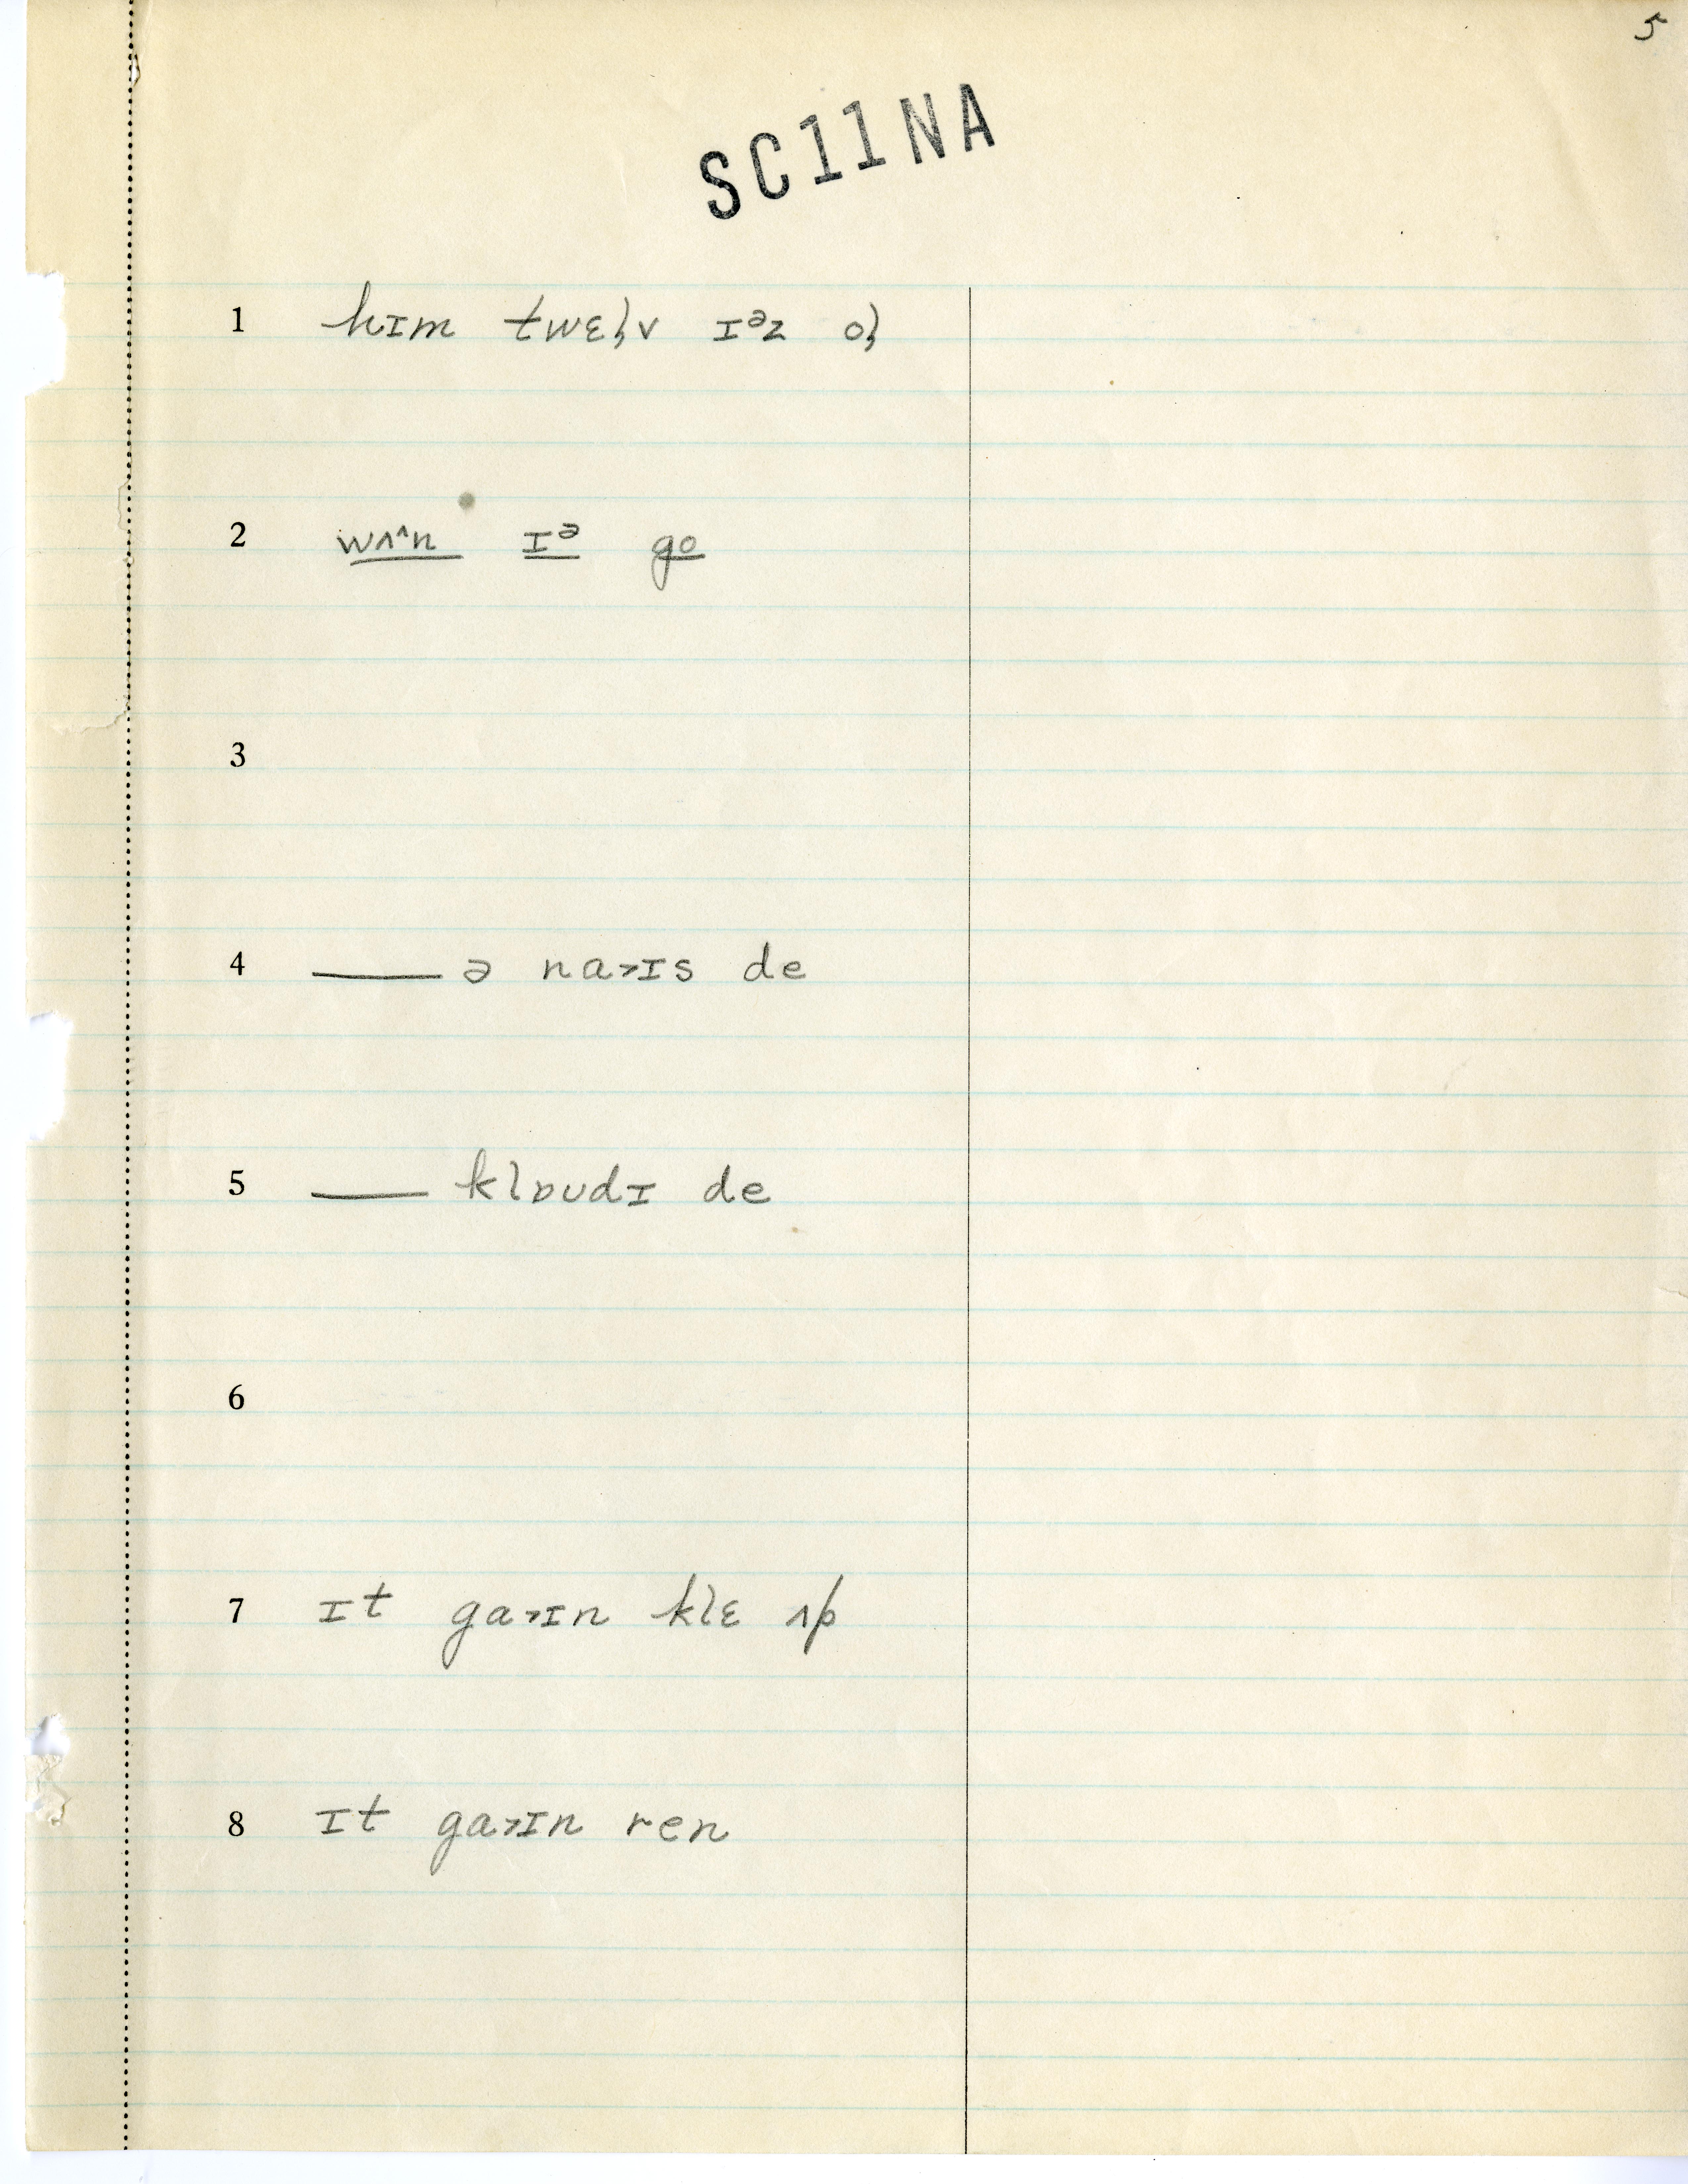 5
SC11NA
1 hɪm twɛɫv ɪᵊz oɫ
2 wʌ^n ɪᵊ go
3
4 ___ ə na>ɪs de
5 ___ klɒʊdɪ de
6
7 ɪt ga>ɪn klɛ ʌp
8 ɪt ga>ɪn ren